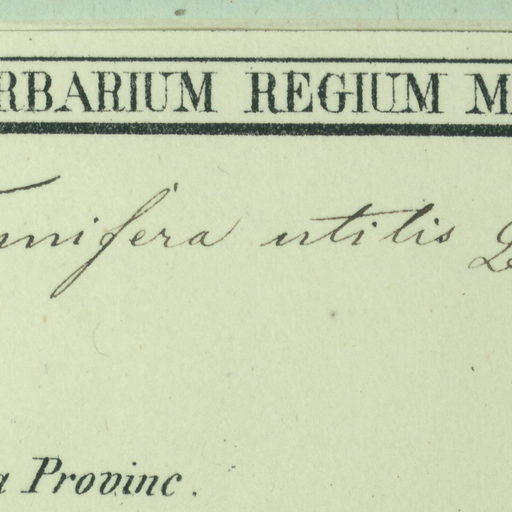 RBARIUM REGIUM M
nnifera utilis
a Provinc.